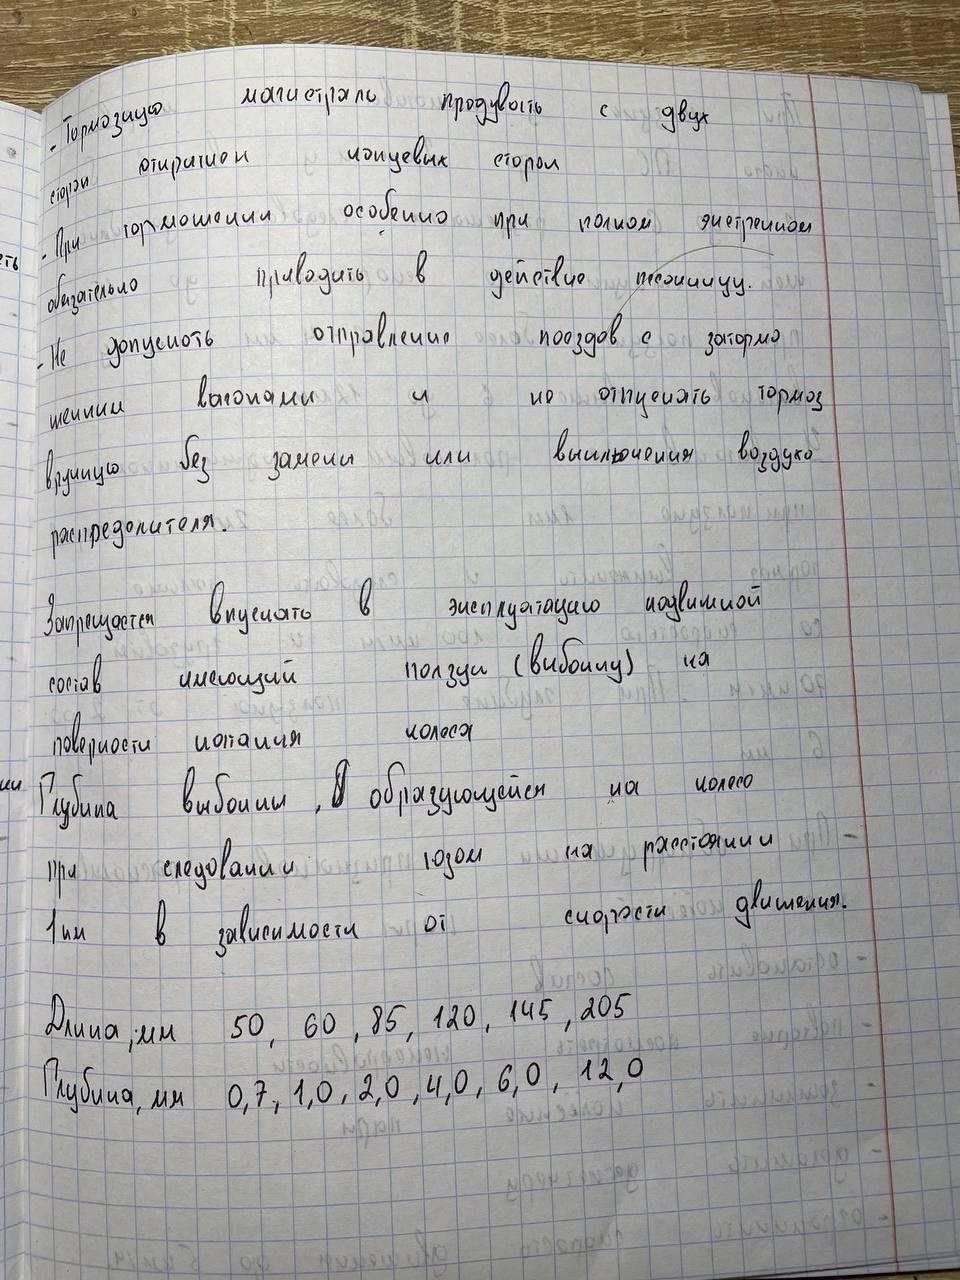 - Тормозную магистраль продувать с двух
сторон открытием концевых сторон
- При торможении особенно при полном экстренном
обязательно приводить в действие песочницу.
- Не допускать отправление поездов с затормо
шенним вагонами и не отпускать тормоз
вручную без замены или выключения воздухо
распределителя.
Запрещается впускать в эксплуатацию подвижной
состав имеющий ползун (выбоину) на
поверности катания колеса
Глубина выбоины, образующейся на колесо
при следовании юзом на расстоянии
1км в зависимости от скорости движения.
Длина, мм 50, 60, 85, 120, 145, 205
Глубина, мм 0,7, 1,0, 2,0, 4,0, 6,0, 12,0